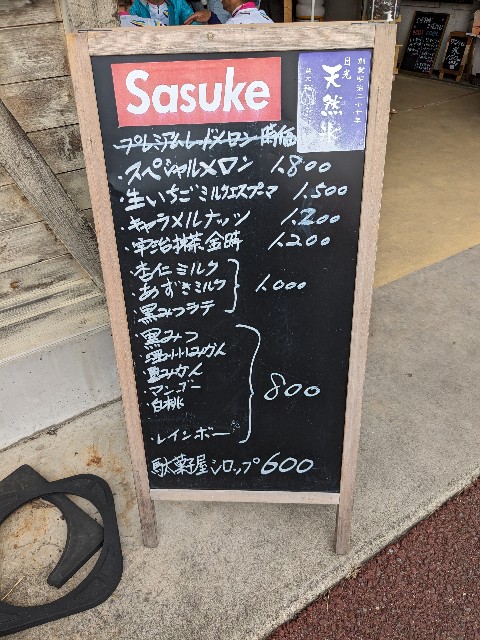 Sasuke
創業明治二十七年
日光
天然氷
プレミアムレッドメロン 時価
・スペシャルメロン 1.800
・生いちごミルクエスプーマ 1.500
・キャラメルナッツ 1.200
・宇治抹茶金時 1.200
・杏仁ミルク
・あずきミルク 1.000
・黒みつシテ
・黒みつ
みかん
みかん
・マンゴー
・白桃
800
・レインボー
駄菓子屋シロップ 600